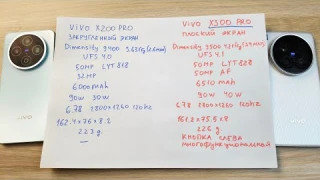 VIVO X200 PRO
ЗАКРУГЛЕННЫЙ ЭКРАН
Dimensity 9400
UFS 4.0
50MP LYT 818
32MP
6000mAh
90W 30W
6.78 2800x1260 120hz
162.4x76x8.2
223g
—
VIVO X300 PRO
ПЛОСКИЙ ЭКРАН
Dimensity 9500
UFS 4.1
50MP LYT 828
50MP AF
6510 mAh
90W 40W
6.78 2800x1260 120hz
161.2x75.5x8
226g
КНОПКА СЛЕВА
МНОГОФУНКЦИОНАЛЬНАЯ
vivo